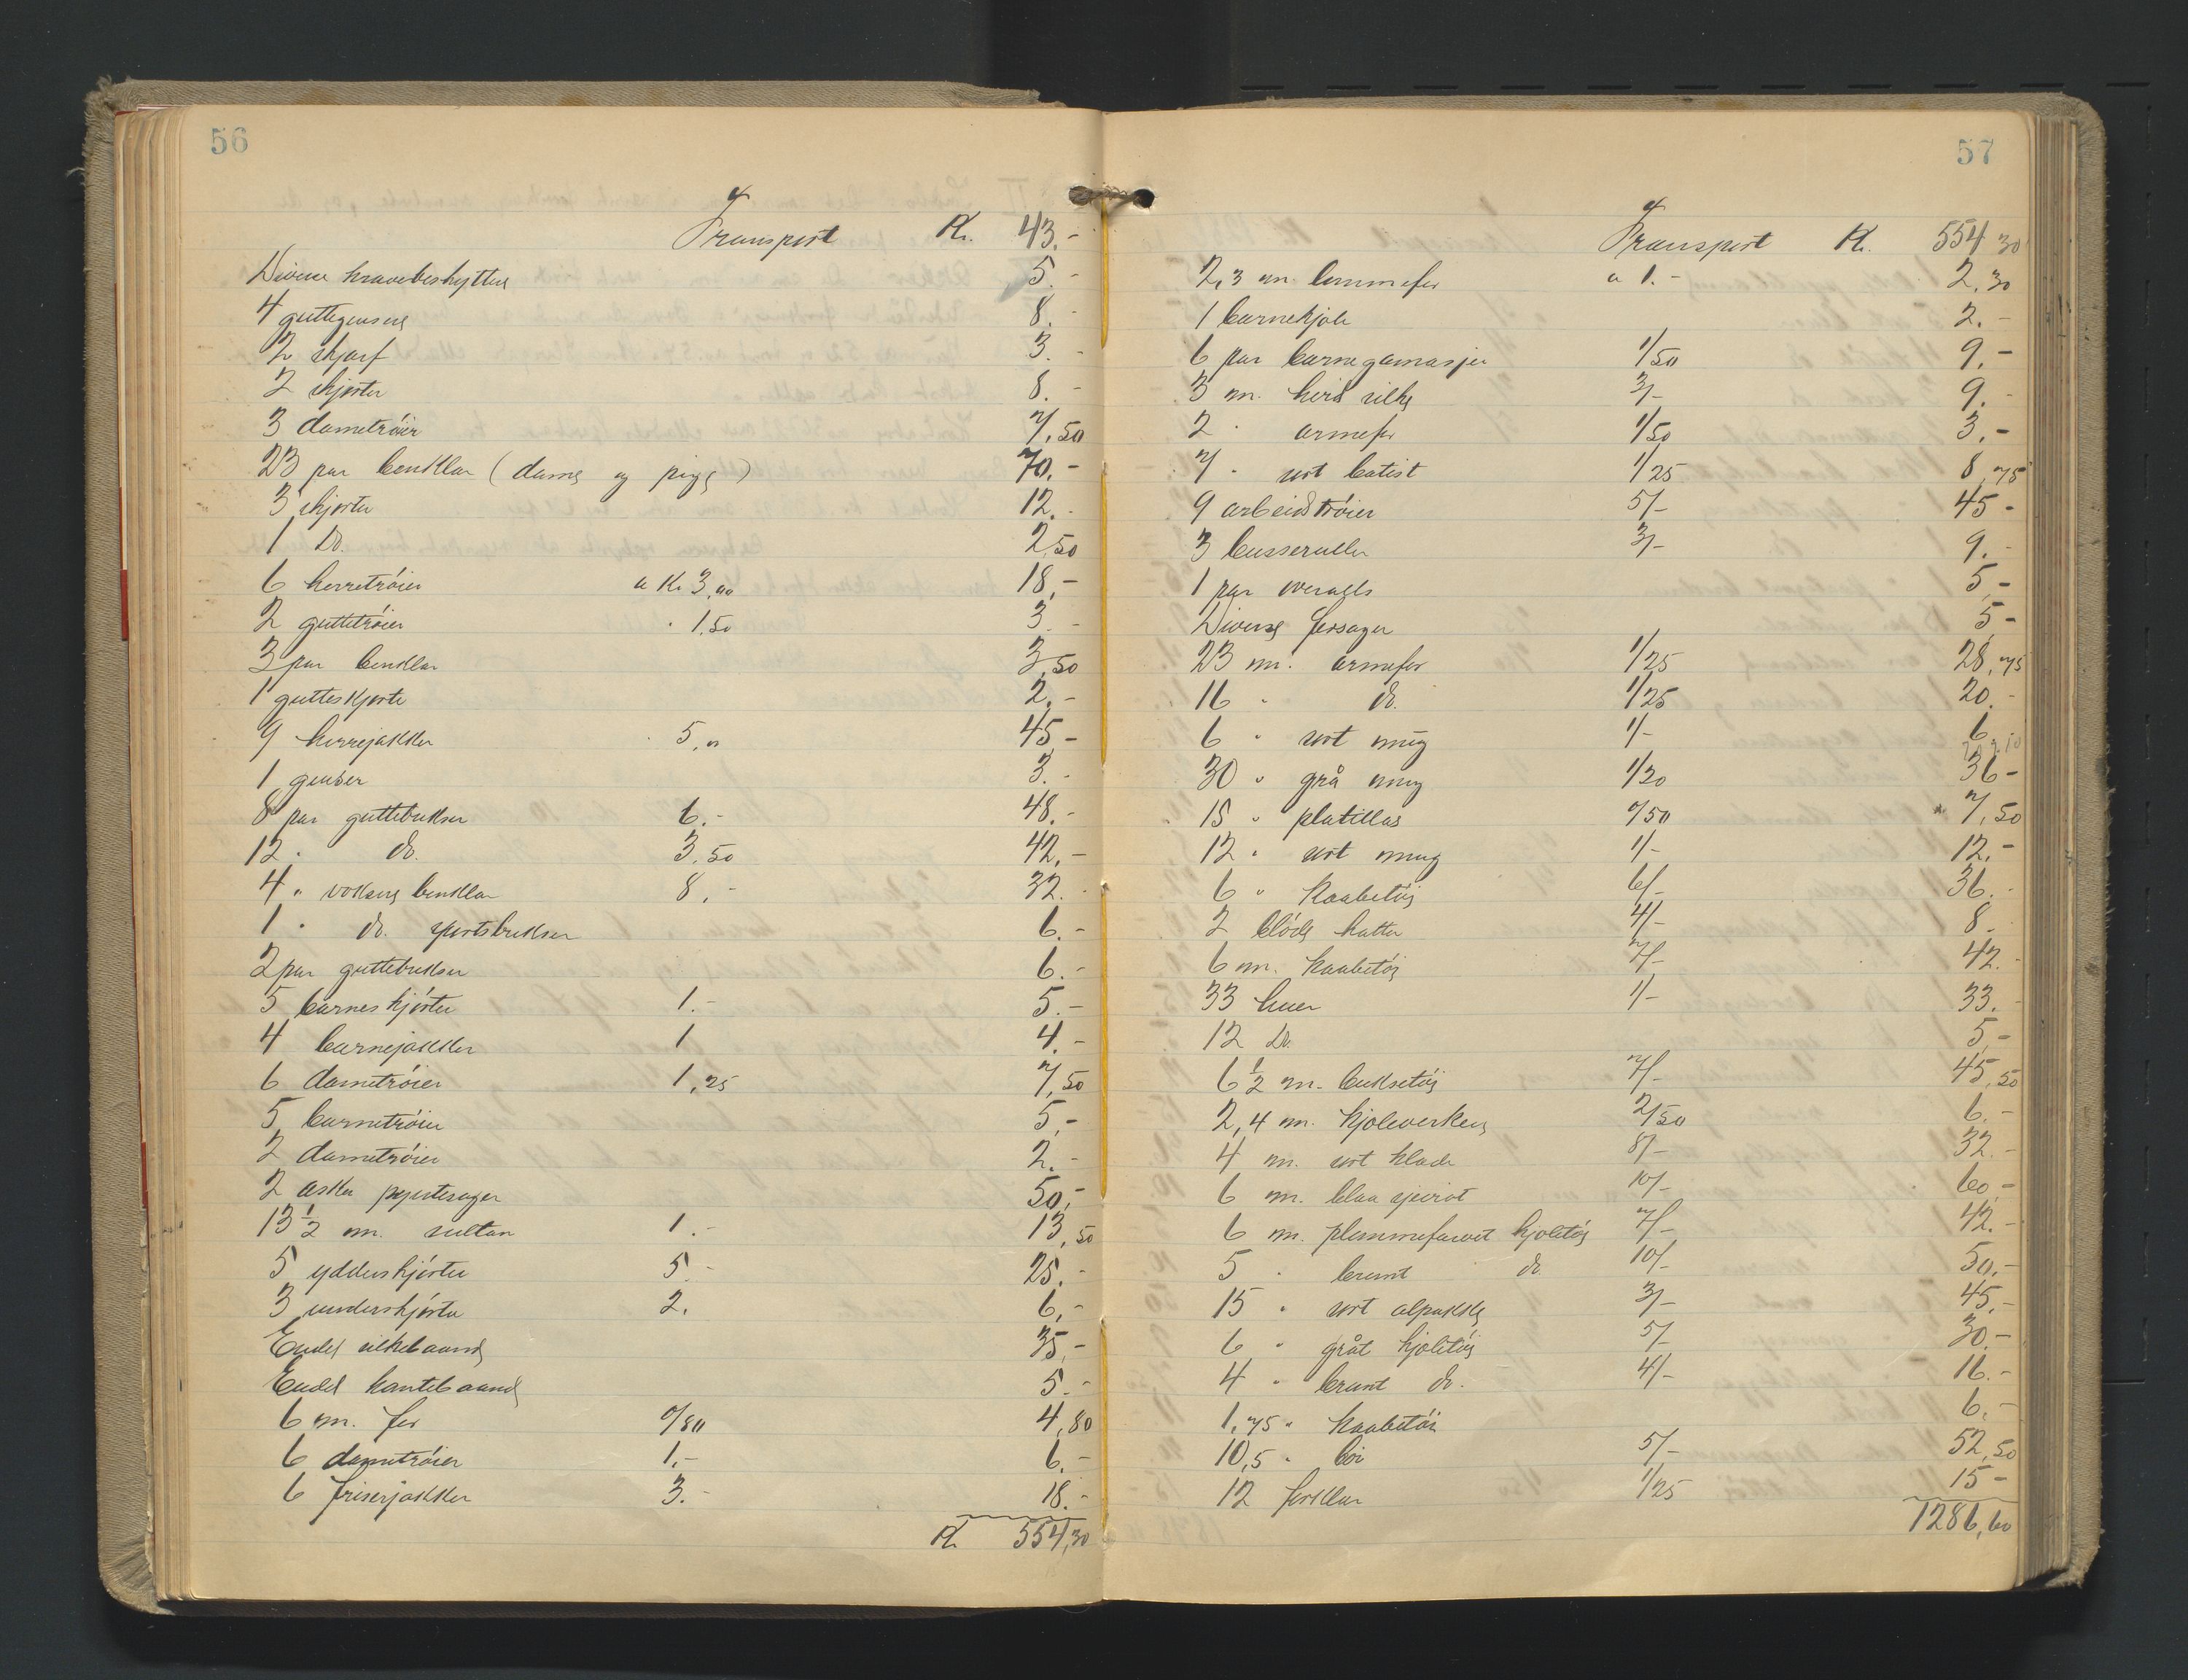 56
Transport Kr. 43.-
Diverse kravebeskyttere 5.-
4 guttegensere 8.-
2 skjærf 3.-
2 skjorter 8.-
3 dametrøier 7,50
23 par benklær (dame og pige) 70.-
3 skjorter 12.-
1 Do. 2,50
6 herretrøier a Kr 3,00 18,-
2 guttetrøier " 1,50 3.-
3 par benklær 3,50
1 gutteskjorte 2.-
9 herrejakker 5,00 45,-
1 genser 3.-
8 par guttebukser 6.- 48.-
12 " do. 3,50 42,-
4 " voksne benklær 8,- 32.-
1 " do. sportsbukser 6.-
2 par guttebukser 6.-
5 barneskjørter 1.- 5.-
4 barnejakker 1 4.-
6 dametrøier 1,25 7,50
5 barnetrøier 5,-
2 dametrøier 2.-
2 æsker pyntesager 50,-
13 1/2 m. sultan 1.- 13,50
5 ydderskjørter 5.- 25.-
3 underskjørter 2. 6,-
Endel silkebaand 35,-
Endel kantebaand 5.-
6 m. for 0/80 4,80
6 dametrøier 1,- 6.-
6 friserjakker 3.- 18.-
Kr 554,30
57
Transport Kr. 554 30
2,3 m. lommefor a 1.- 2,30
1 barnekjole 2.-
6 par barnegamasjer 1/50 9.-
3 m. hvid silke 3/- 9.-
2 " ermefor 1/50 3.-
7 " sort batist 1/25 8,75
9 arbeidstrøier 5/- 45-
3 busseruller 3/- 9.-
1 par overalls 5,-
Diverse forsager 5-
23 m. ermefor 1/25 28,75
16 " do. 1/25 20.-
6 " sort mug 1/- 6.
30 " grå mug 1/20 36-
15 " platillas 0/50 7,50
12 " sort mug 1/- 12.-
6 " kaabetøi 6/- 36.-
2 bløde hatter 4/- 8.
6 m. kaabetøi 7/- 42.-
33 huer 1/- 33.-
12 Do. 5,-
6 1/2 m. buksetøi 7/- 45,50
2,4 m. kjoleverken 2/50 6.-
4 m. sort klæde 8/- 32.-
6 m. blaa sjeviot 10/- 60,-
6 m. plommefarvet kjoletøi 7/- 42.-
5 " brunt do. 10/- 50,-
15 " sort alpakke 3/- 45,-
6 " gråt kjoletøi 5/- 30.-
4 " brunt do. 4/- 16.-
1,75 " kaabetøi 6.-
10,5 " boi 5/- 52,50
12 forklær 1/25 15-
1286,60